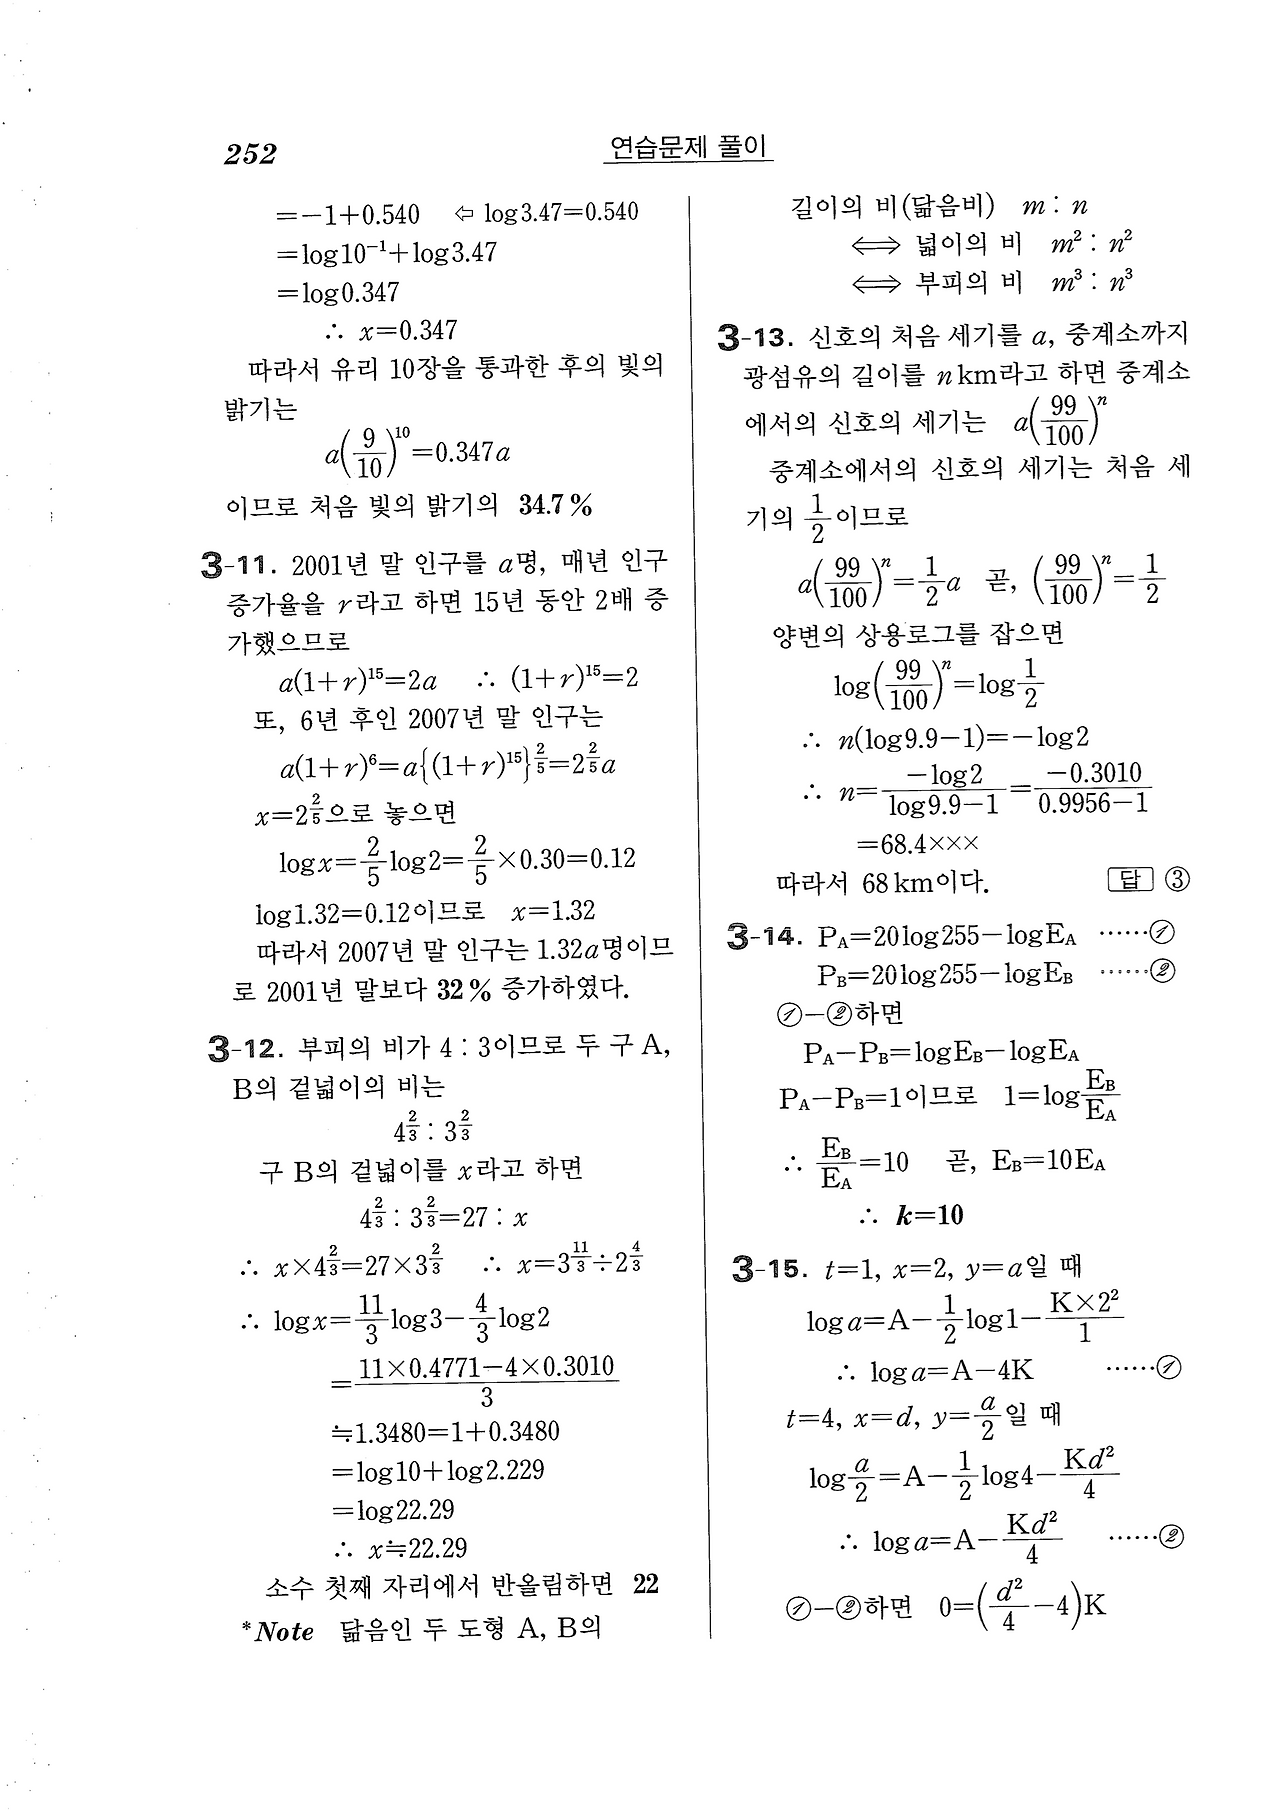 252
연습문제 풀이
=−1+0.540 ⇦ log3.47=0.540
=log10⁻¹+log3.47
=log0.347
∴ x=0.347
따라서 유리 10장을 통과한 후의 빛의
밝기는
a(9/10)¹⁰=0.347a
이므로 처음 빛의 밝기의 34.7%
3-11. 2001년 말 인구를 a명, 매년 인구
증가율을 r라고 하면 15년 동안 2배 증
가했으므로
a(1+r)¹⁵=2a ∴ (1+r)¹⁵=2
또, 6년 후인 2007년 말 인구는
a(1+r)⁶=a{(1+r)¹⁵}^(2/5)=2^(2/5)a
x=2^(2/5)으로 놓으면
logx=2/5log2=2/5×0.30=0.12
log1.32=0.12이므로 x=1.32
따라서 2007년 말 인구는 1.32a명이므
로 2001년 말보다 32% 증가하였다.
3-12. 부피의 비가 4 : 3이므로 두 구 A,
B의 겉넓이의 비는
4^(2/3) : 3^(2/3)
구 B의 겉넓이를 x라고 하면
4^(2/3) : 3^(2/3)=27 : x
∴ x×4^(2/3)=27×3^(2/3) ∴ x=3^(11/3)÷2^(4/3)
∴ logx=11/3log3−4/3log2
=(11×0.4771−4×0.3010)/3
≒1.3480=1+0.3480
=log10+log2.229
=log22.29
∴ x≒22.29
소수 첫째 자리에서 반올림하면 22
*Note 닮음인 두 도형 A, B의
길이의 비(닮음비) m : n
⟺ 넓이의 비 m² : n²
⟺ 부피의 비 m³ : n³
3-13. 신호의 처음 세기를 a, 중계소까지
광섬유의 길이를 n km라고 하면 중계소
에서의 신호의 세기는 a(99/100)ⁿ
중계소에서의 신호의 세기는 처음 세
기의 1/2이므로
a(99/100)ⁿ=1/2a 곧, (99/100)ⁿ=1/2
양변의 상용로그를 잡으면
log(99/100)ⁿ=log1/2
∴ n(log9.9−1)=−log2
∴ n=−log2/(log9.9−1)=−0.3010/(0.9956−1)
=68.4×××
따라서 68 km이다. 답 ③
3-14. P_A=20log255−logE_A ……①
P_B=20log255−logE_B ……②
①−②하면
P_A−P_B=logE_B−logE_A
P_A−P_B=1이므로 1=log E_B/E_A
∴ E_B/E_A=10 곧, E_B=10E_A
∴ k=10
3-15. t=1, x=2, y=a일 때
log a=A−1/2log1−(K×2²)/1
∴ log a=A−4K ……①
t=4, x=d, y=a/2일 때
log a/2=A−1/2log4−Kd²/4
∴ log a=A−Kd²/4 ……②
①−②하면 0=(d²/4−4)K